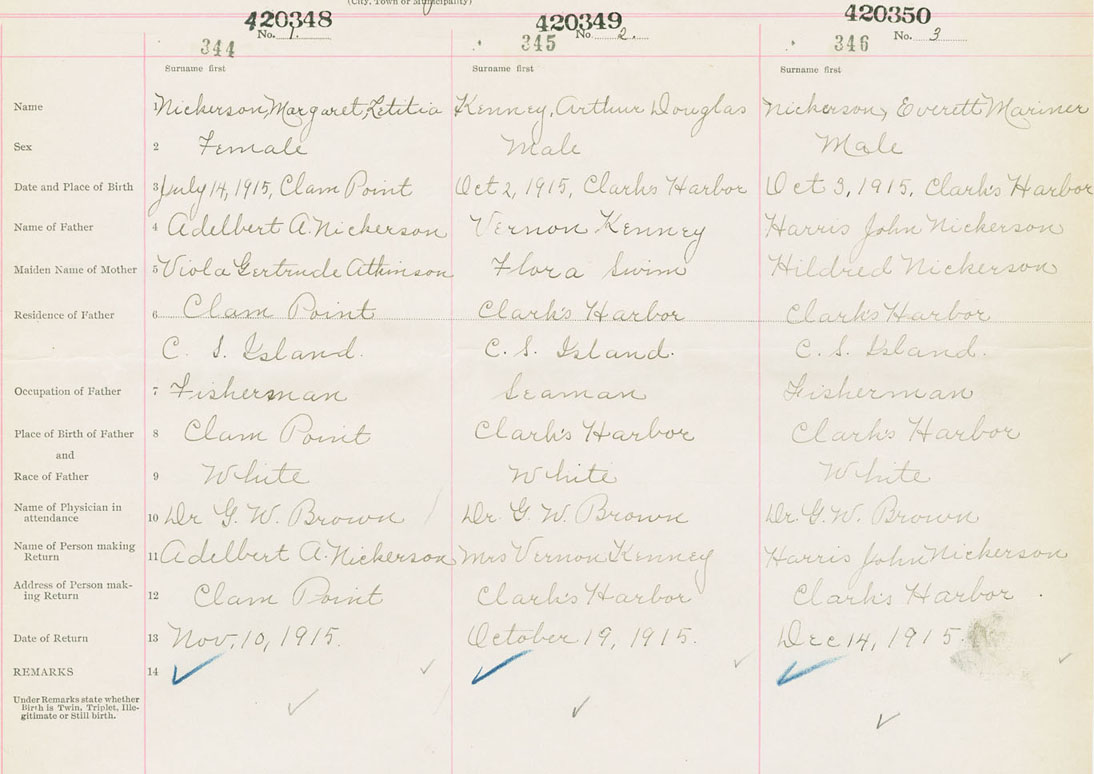 (City, Town or Municipality)
420348 420349 420350
No. 1. No. 2. No. 3
344 345 346
Surname first Surname first Surname first
Name 1 Nickerson, Margaret Letitia Kenney, Arthur Douglas Nickerson, Everett Mariner
Sex 2 Female Male Male
Date and Place of Birth 3 July 14, 1915, Clam Point Oct 2, 1915, Clark's Harbor Oct 3, 1915, Clark's Harbor
Name of Father 4 Adelbert A. Nickerson Vernon Kenney Harris John Nickerson
Maiden Name of Mother 5 Viola Gertrude Atkinson Flora Swim Hildred Nickerson
Residence of Father 6 Clam Point Clark's Harbor Clark's Harbor
C. S. Island. C. S. Island. C. S. Island.
Occupation of Father 7 Fisherman Seaman Fisherman
Place of Birth of Father 8 Clam Point Clark's Harbor Clark's Harbor
and
Race of Father 9 White White White
Name of Physician in attendance 10 Dr G. W. Brown Dr. G. W. Brown Dr. G. W. Brown
Name of Person making Return 11 Adelbert A. Nickerson Mrs Vernon Kenney Harris John Nickerson
Address of Person mak-ing Return 12 Clam Point Clark's Harbor Clark's Harbor.
Date of Return 13 Nov. 10, 1915. October 19, 1915. Dec 14, 1915.
REMARKS 14
Under Remarks state whether
Birth is Twin, Triplet, Ille-
gitimate or Still birth.